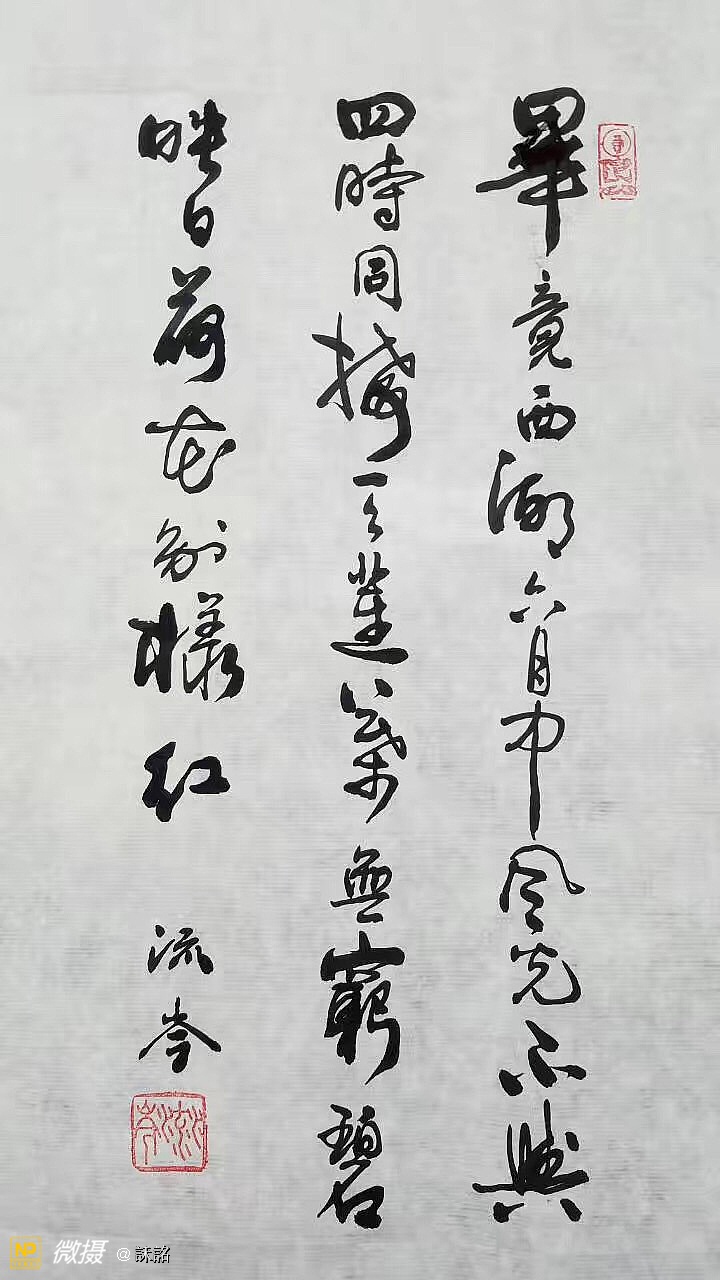 畢竟西湖六月中風光不與
四時同接天蓮葉無窮碧
映日荷花別樣紅
流岑
微摄